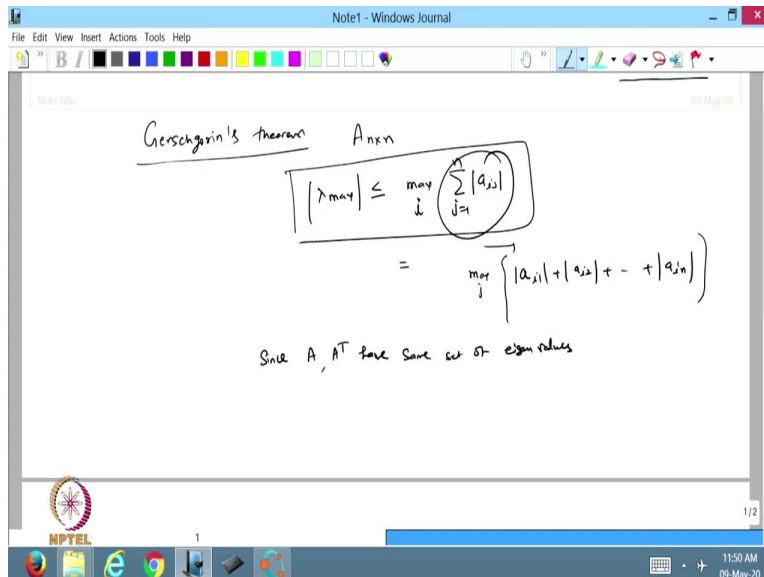 Note1 - Windows Journal
File Edit View Insert Actions Tools Help
B I
Note Title
09-May-20
Gerschgorin's theorem A n×n
|λ max| ≤ max i n Σ j=1 |a ij|
= max i { |a i1| + |a i2| + - + |a in| }
Since A, A^T have same set of eigen values
1/2
NPTEL
1
11:50 AM
09-May-20